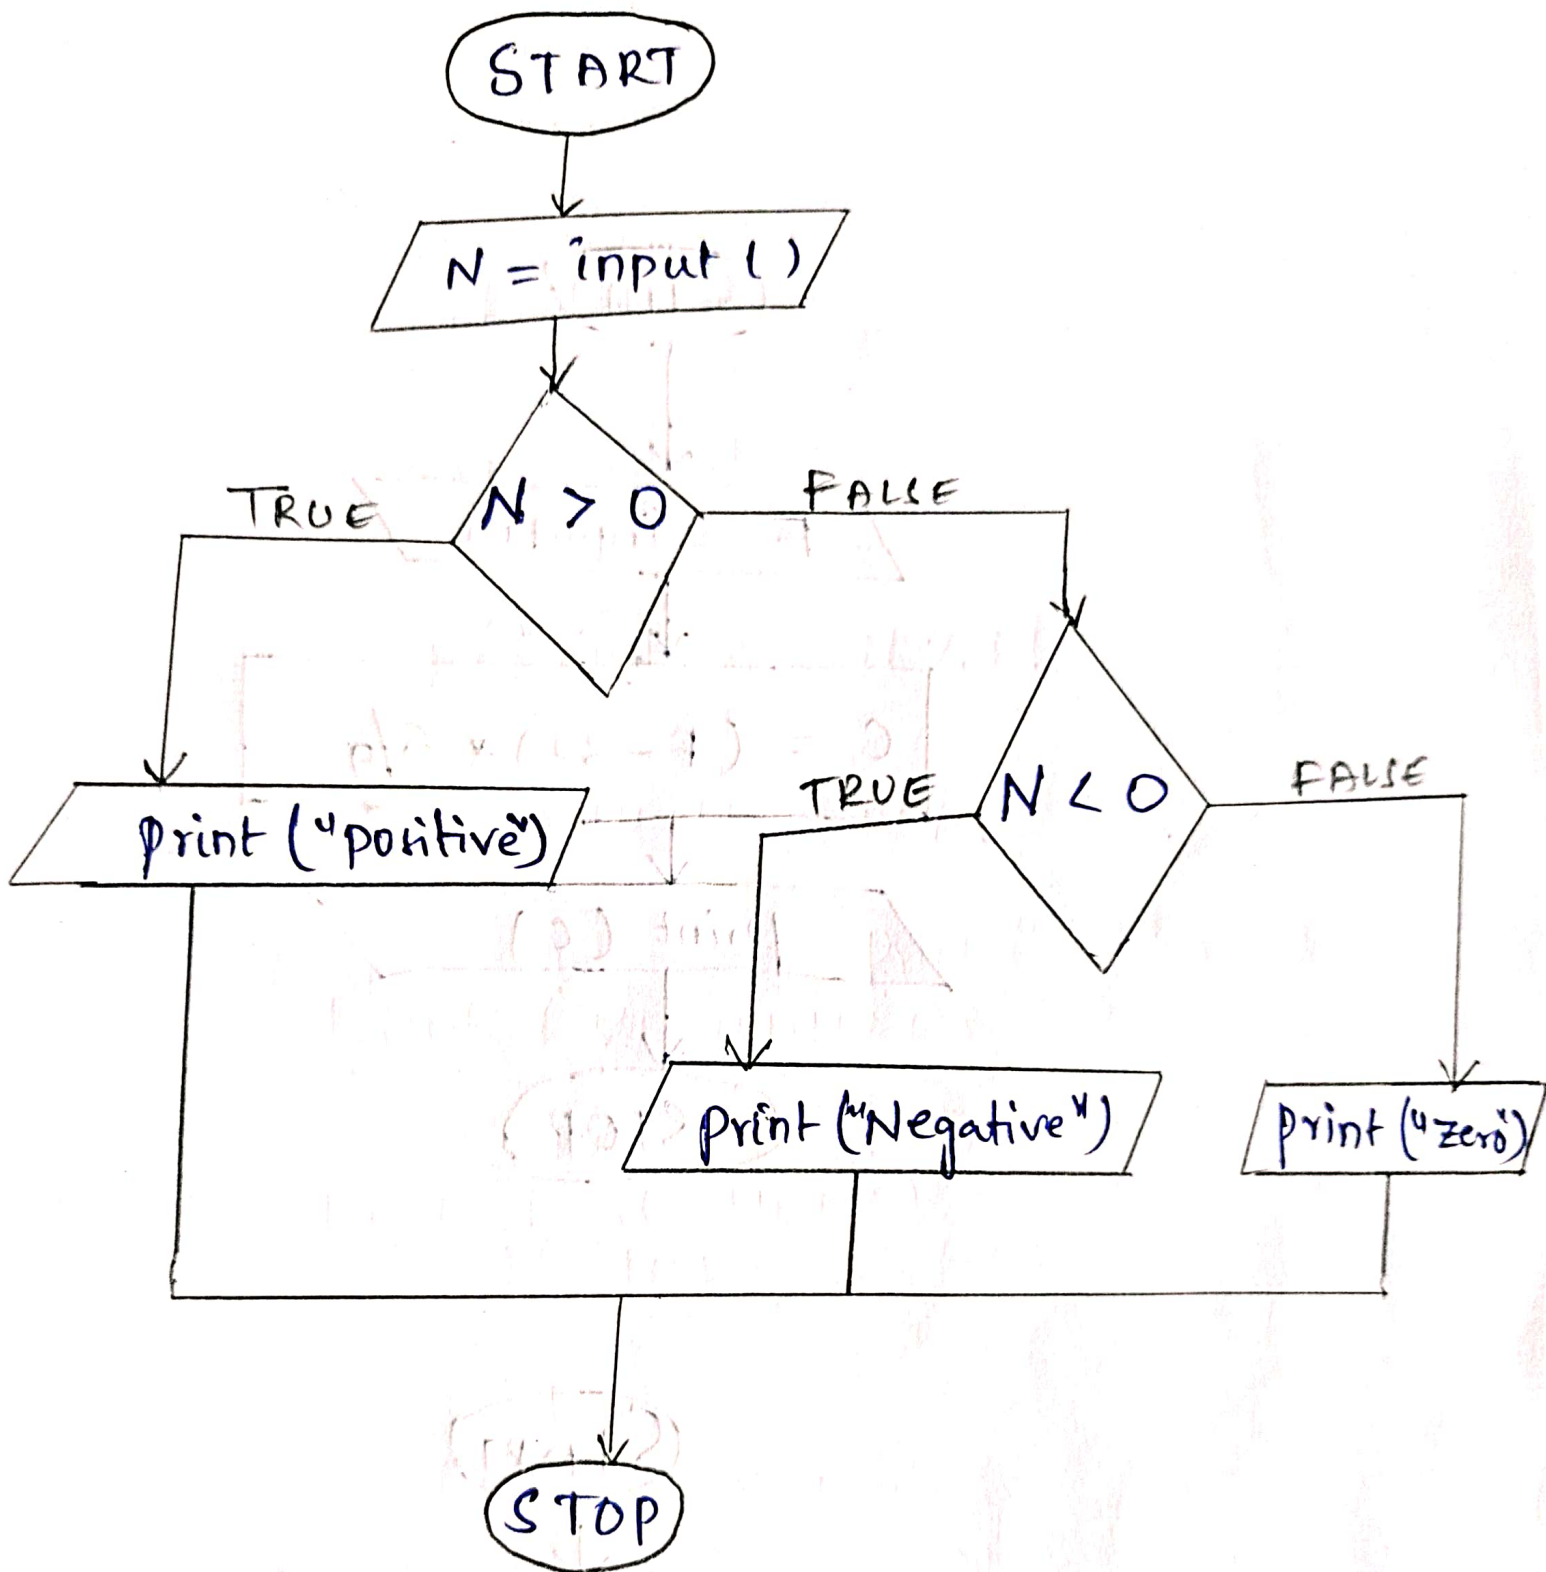 START
N = input ()
N > 0
TRUE
FALSE
print ("positive")
N < 0
TRUE
FALSE
print ("Negative")
print ("zero")
STOP